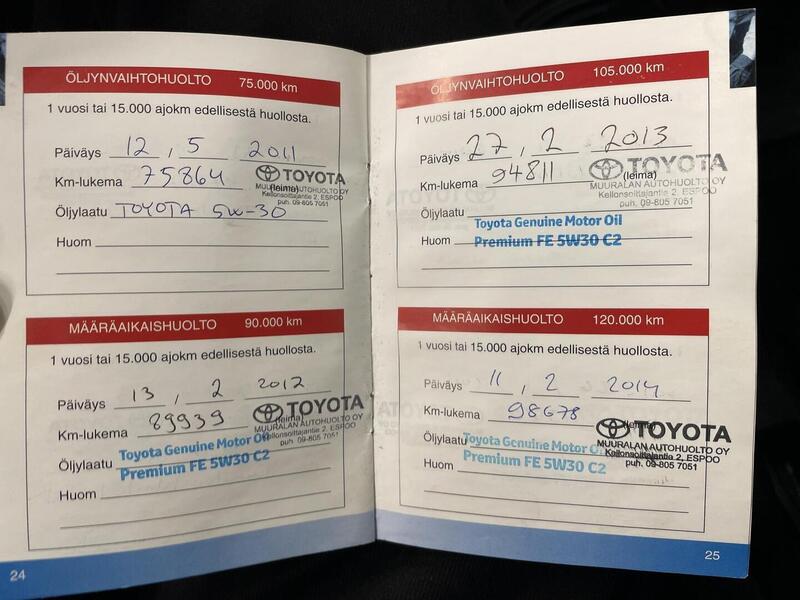 ÖLJYNVAIHTOHUOLTO 75.000 km
1 vuosi tai 15.000 ajokm edellisestä huollosta.
Päiväys 12, 5 2011
Km-lukema 75864
TOYOTA
(leima)
MUURALAN AUTOHUOLTO OY
Kellonsoittajantie 2, ESPOO
puh. 09-805 7051
Öljylaatu TOYOTA 5W-30
Huom
MÄÄRÄAIKAISHUOLTO 90.000 km
1 vuosi tai 15.000 ajokm edellisestä huollosta.
Päiväys 13, 2 2012
Km-lukema 89939
TOYOTA
(leima)
MUURALAN AUTOHUOLTO OY
Kellonsoittajantie 2, ESPOO
puh. 09-805 7051
Öljylaatu Toyota Genuine Motor Oil
Premium FE 5W30 C2
Huom
24
ÖLJYNVAIHTOHUOLTO 105.000 km
1 vuosi tai 15.000 ajokm edellisestä huollosta.
Päiväys 27, 2 2013
Km-lukema 94811
TOYOTA
(leima)
MUURALAN AUTOHUOLTO OY
Kellonsoittajantie 2, ESPOO
puh. 09-805 7051
Öljylaatu Toyota Genuine Motor Oil
Huom Premium FE 5W30 C2
MÄÄRÄAIKAISHUOLTO 120.000 km
1 vuosi tai 15.000 ajokm edellisestä huollosta.
Päiväys 11, 2 2014
Km-lukema 98678
(leima)
TOYOTA
MUURALAN AUTOHUOLTO OY
Kellonsoittajantie 2, ESPOO
puh. 09-805 7051
Öljylaatu Toyota Genuine Motor Oil
Premium FE 5W30 C2
Huom
25